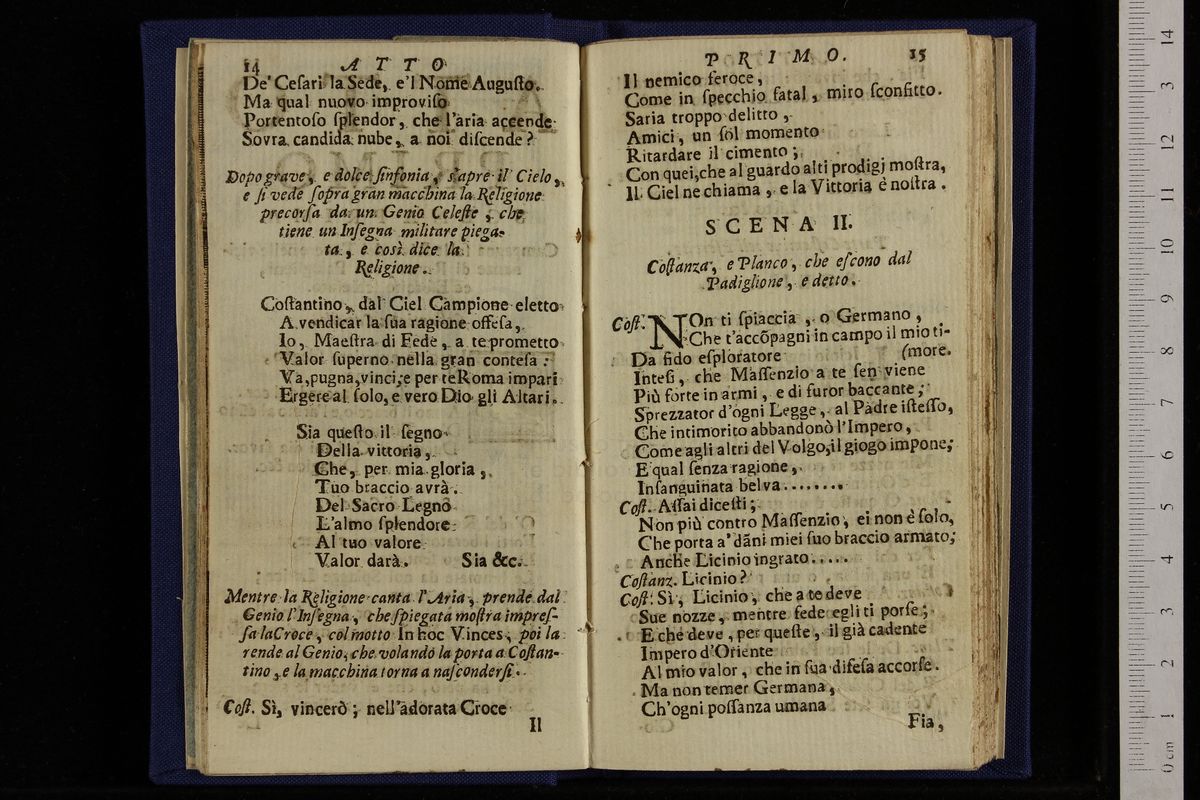 14 ATTO
De' Ceſari la Sede, e'l Nome Auguſto.
Ma qual nuovo improviſo
Portentoſo ſplendor, che l'aria accende
Sovra candida nube, a noi diſcende?
Dopo grave, e dolce ſinfonia, s'apre il Cielo,
e ſi vede ſopra gran macchina la Religione
precorſa da un Genio Celeſte, che
tiene un Inſegna militare piega-
ta, e così dice la
Religione.
Coſtantino, dal Ciel Campione eletto
A vendicar la ſua ragione offeſa,
Io, Maeſtra di Fede, a te prometto
Valor ſuperno nella gran conteſa:
Va, pugna, vinci; e per te Roma impari
Ergere al ſolo, e vero Dio gli Altari.
Sia queſto il ſegno
Della vittoria,
Che, per mia gloria,
Tuo braccio avrà.
Del Sacro Legno
L'almo ſplendore
Al tuo valore
Valor darà. Sia &c.
Mentre la Religione canta l'Aria, prende dal
Genio l'Inſegna, che ſpiegata moſtra impreſ-
ſa la Croce, col motto In hoc Vinces, poi la
rende al Genio, che volando la porta a Coſtan-
tino, e la macchina torna a naſconderſi.
Coſt. Sì, vincerò; nell'adorata Croce
Il
PRIMO. 15
Il nemico feroce,
Come in ſpecchio fatal, miro ſconfitto.
Saria troppo delitto,
Amici, un ſol momento
Ritardare il cimento;
Con quei, che al guardo alti prodigj moſtra,
Il Ciel ne chiama, e la Vittoria è noſtra.
SCENA II.
Coſtanza, e Planco, che eſcono dal
Padiglione, e detto.
Coſt. NOn ti ſpiaccia, o Germano,
Che t'accõpagni in campo il mio ti-
Da fido eſploratore (more.
Inteſi, che Maſſenzio a te ſen viene
Più forte in armi, e di furor baccante;
Sprezzator d'ogni Legge, al Padre iſteſſo,
Che intimorito abbandonò l'Impero,
Come agli altri del Volgo, il giogo impone;
E qual ſenza ragione,
Inſanguinata belva........
Coſt. Aſſai diceſti;
Non più contro Maſſenzio, ei non è ſolo,
Che porta a' dãni miei ſuo braccio armato;
Anche Licinio ingrato.....
Coſtanz. Licinio?
Coſt. Sì, Licinio, che a te deve
Sue nozze, mentre fede egli ti porſe;
E che deve, per queſte, il già cadente
Impero d'Oriente
Al mio valor, che in ſua difeſa accorſe.
Ma non temer Germana,
Ch'ogni poſſanza umana
Fia,
0 cm 1 2 3 4 5 6 7 8 9 10 11 12 3 14